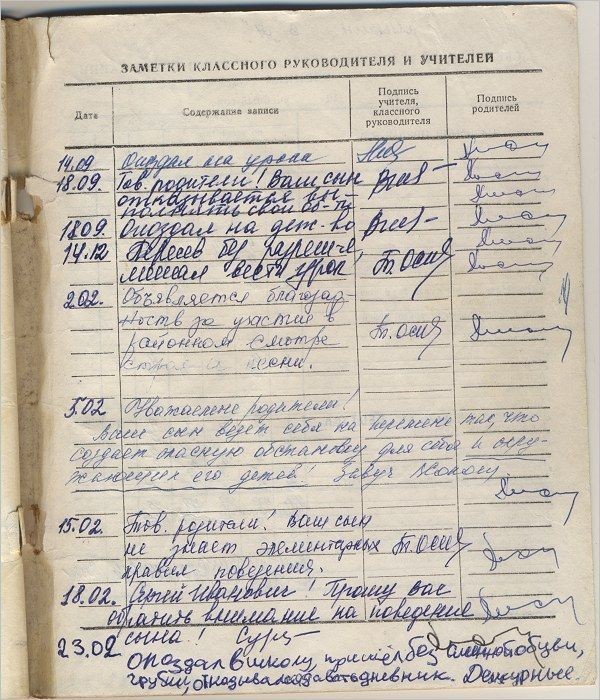 ЗАМЕТКИ КЛАССНОГО РУКОВОДИТЕЛЯ И УЧИТЕЛЕЙ
Дата
Содержание записи
Подпись учителя, классного руководителя
Подпись родителей
14.09 Опоздал на урок
18.09. Тов. родители! Ваш сын
отказывается вы-
полнять свои об-ти
18.09 Опоздал на деж-во
14.12 Пересев без разреше-
мешал вести урок Т. Осип
2.02. Объявляется благодар-
ность за участие в
районном смотре Т. Осип
строя и песни.
5.02 Уважаемые родители!
Ваш сын ведёт себя на перемене так, что
создаёт опасную обстановку для себя и окру-
жающих его детей! Завуч
15.02. Тов. родители! Ваш сын
не знает элементарных Т. Осип
правил поведения.
18.02. Сергей Иванович! Прошу Вас
обратить внимание на поведение
сына!
23.02 опоздал в школу, пришёл без сменной обуви,
грубил, отказывался давать дневник. Дежурные.